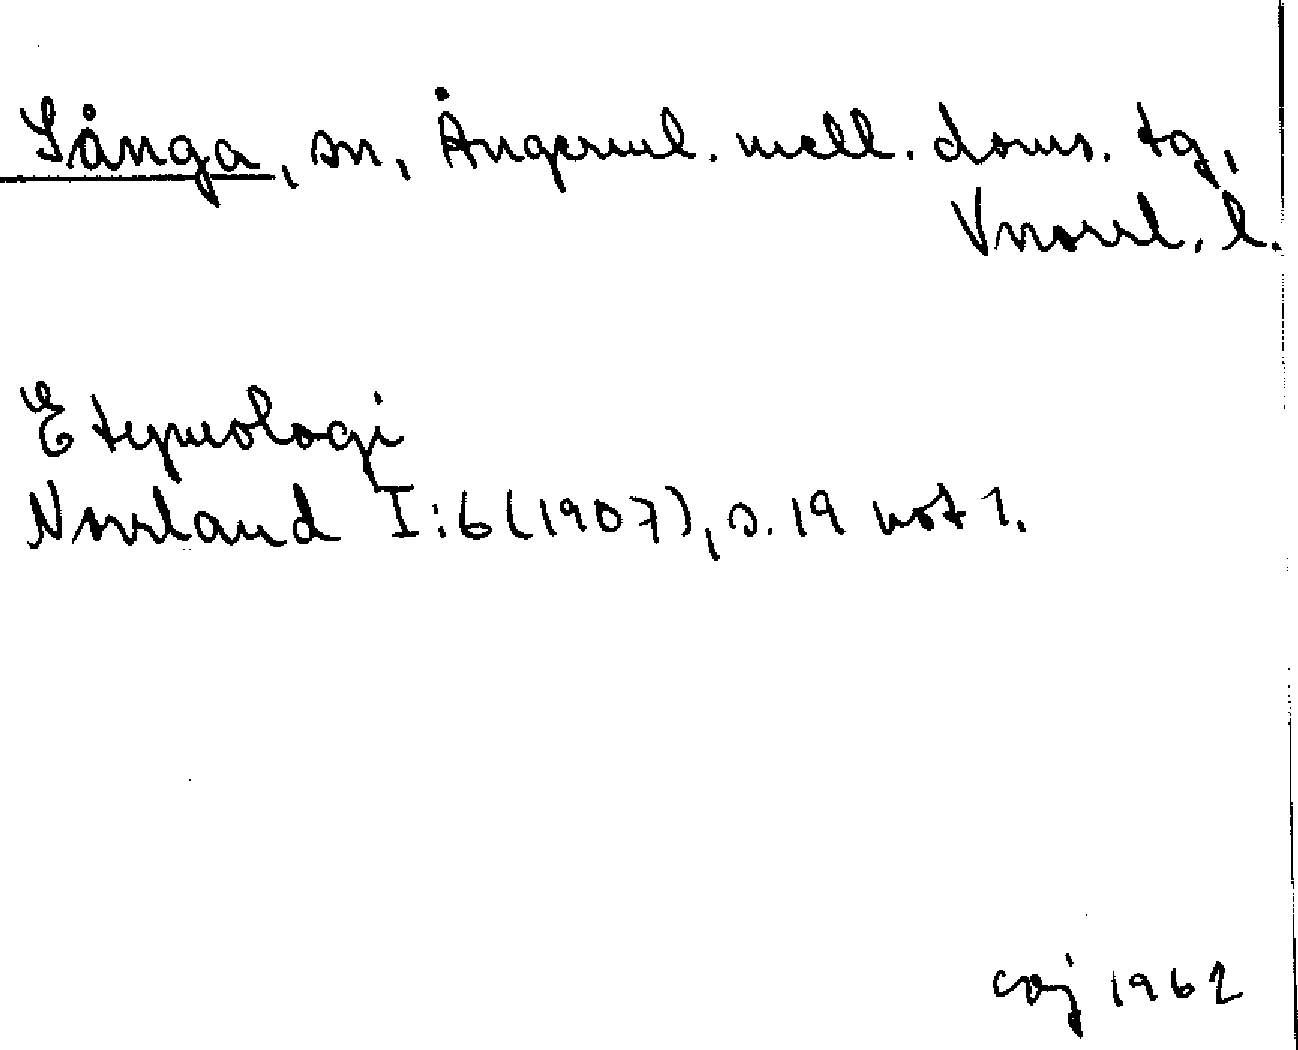 Sånga, sn, Ångerml. mell. doms. tg,
Vnorrl. l.
Etymologi
Norrland I:6 (1907), s. 19 not 1.
coj 1962